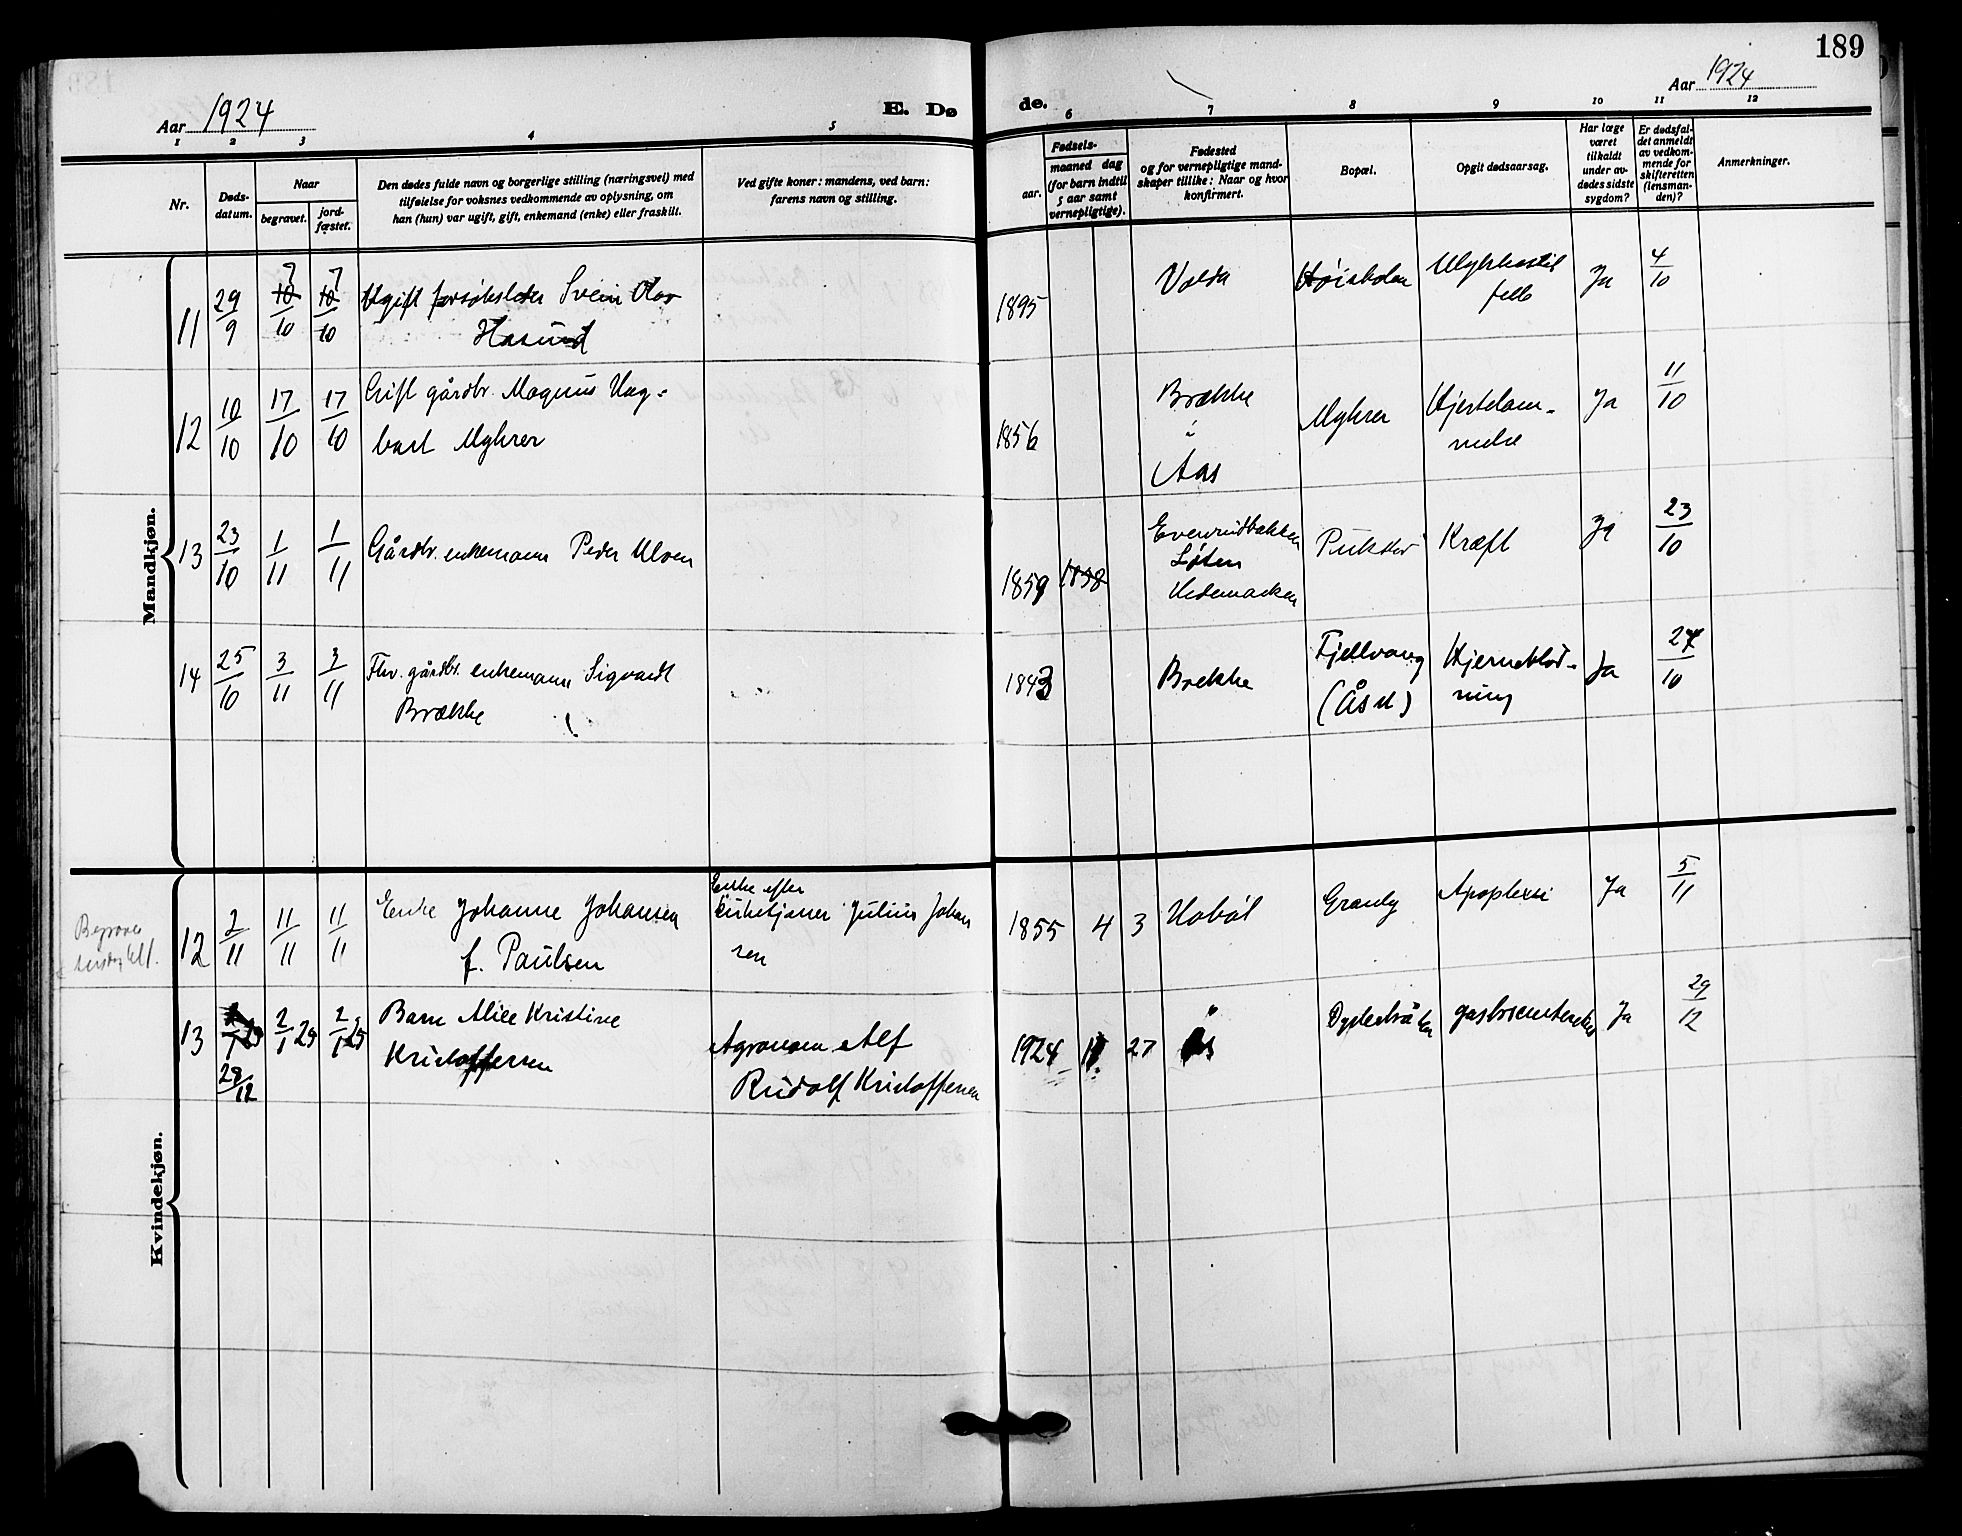 189
Aar 1924
E. Dø
de.
Aar 1924
1 2 3 4 5 6 7 8 9 10 11 12
Nr.
Døds-
datum.
Naar
begravet.
jord-
fæstet.
Den dødes fulde navn og borgerlige stilling (næringsvei) med
tilføielse for voksnes vedkommende av oplysning, om
han (hun) var ugift, gift, enkemand (enke) eller fraskilt.
Ved gifte koner: mandens, ved barn:
farens navn og stilling.
Fødsels-
aar.
maaned dag
(for barn indtil
5 aar samt
vernepligtige).
Fødested
og for vernepligtige mand-
skaper tillike: Naar og hvor
konfirmert.
Bopæl.
Opgit dødsaarsag.
Har læge
været
tilkaldt
under av-
dødes sidste
sygdom?
Er dødsfal-
det anmeldt
av vedkom-
mende for
skifteretten
(lensman-
den)?
Anmerkninger.
Mandkjøn.
11 29/9 7/10 7/10 Ugift forsøksleder Svein Olav
Hasund
1895 Volda Høiskolen Ulykkestil
felle
Ja 4/10
12 10/10 17/10 17/10 Gift gårdbr. Magnus Hag-
bart Myhrer
1856 Brække
i
Aas
Myhrer Hjertelam-
melse
Ja 11/10
13 23/10 1/11 1/11 Gårdbr. enkemann Peder Ulven
1859 1858
Løten
Hedemarken
Kræft Ja 23/10
14 25/10 3/11 3/11 Fhv. gårdbr. enkemann Sigvardt
Brække
1843 Brekke Fjellvang
(Ås st)
Hjerneblød-
ning
Ja 27/10
Kvindekjøn.
12 2/11 11/11 11/11 Enke Johanne Johansen
f. Paulsen
Enke efter
Julius Johan
sen
1855 4 3 Hobøl Granly Apoplexi Ja 5/11
13 28/12 2/1 25 2/1 25 Barn Alice Kristine
Kristoffersen
Agronom Alf
Rudolf Kristoffersen
1924 27 Ås Ja 29/12